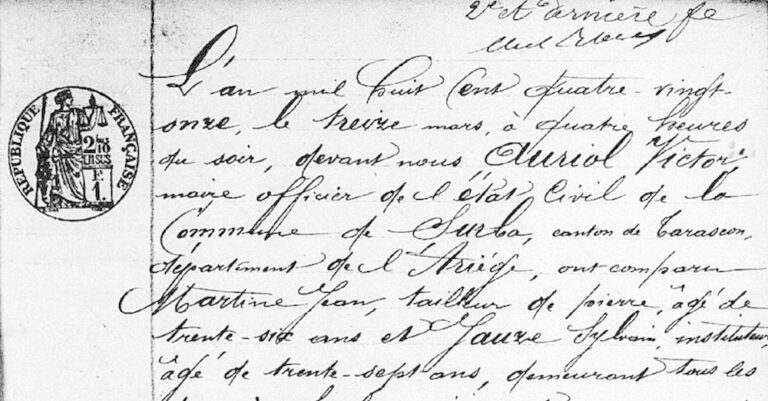 2e et dernière fe
RÉPUBLIQUE FRANÇAISE
L'an mil huit Cent quatre-vingt-
onze, le treize mars, à quatre heures
du soir, devant nous Auriol Victor,
maire officier de l'état Civil de la
Commune de Surba, canton de Tarascon,
département de l'Ariége, ont comparu
Martine Jean, tailleur de pierre, âgé de
trente-six ans et Gauze Sylvain, instituteur,
âgé de trente-sept ans, demeurant tous les